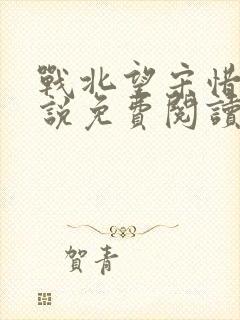 戰北望宋惜
說免費閱讀
賀青